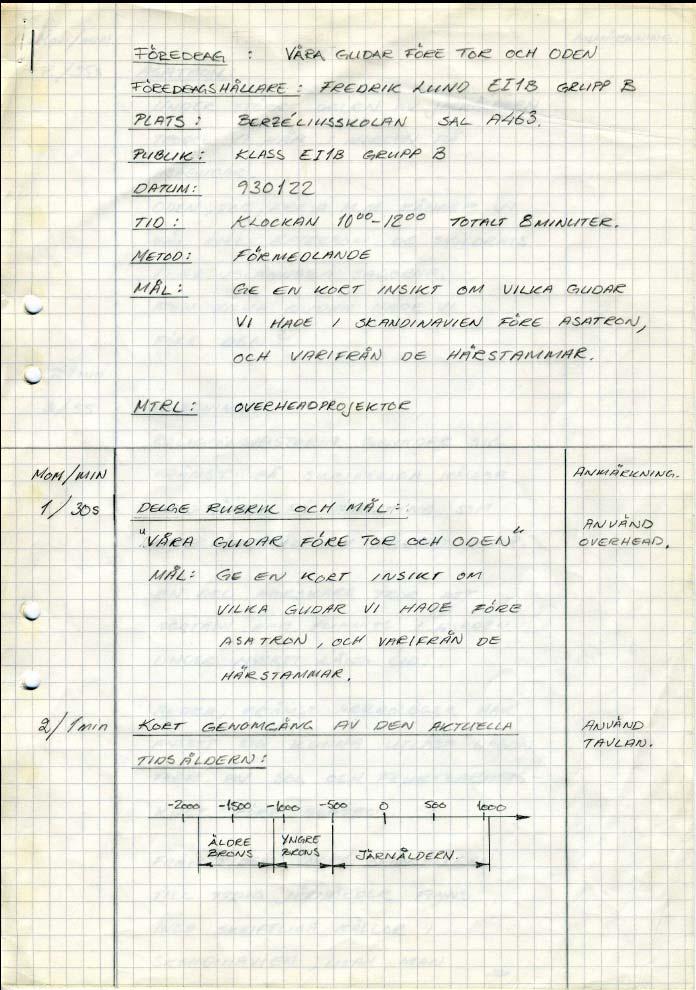 FÖREDRAG : VÅRA GUDAR FÖRE TOR OCH ODEN
FÖREDRAGSHÅLLARE : FREDRIK LUND EI1B GRUPP B
PLATS : BERZÉLIUSSKOLAN SAL A463.
PUBLIK : KLASS EI1B GRUPP B
DATUM : 930122
TID : KLOCKAN 10⁰⁰-12⁰⁰ TOTALT 8 MINUTER.
METOD : FÖRMEDLANDE
MÅL : GE EN KORT INSIKT OM VILKA GUDAR
VI HADE I SKANDINAVIEN FÖRE ASATRON,
OCH VARIFRÅN DE HÄRSTAMMAR.
MTRL : OVERHEADPROJEKTOR
MOM/MIN ANMÄRKNING.
1/30s DELGE RUBRIK OCH MÅL :
ANVÄND
OVERHEAD.
"VÅRA GUDAR FÖRE TOR OCH ODEN"
MÅL : GE EN KORT INSIKT OM
VILKA GUDAR VI HADE FÖRE
ASATRON, OCH VARIFRÅN DE
HÄRSTAMMAR.
2/1 min KORT GENOMGÅNG AV DEN AKTUELLA
TIDSÅLDERN :
ANVÄND
TAVLAN.
-2000 -1500 -1000 -500 0 500 1000
ÄLDRE
BRONS
YNGRE
BRONS
JÄRNÅLDERN.